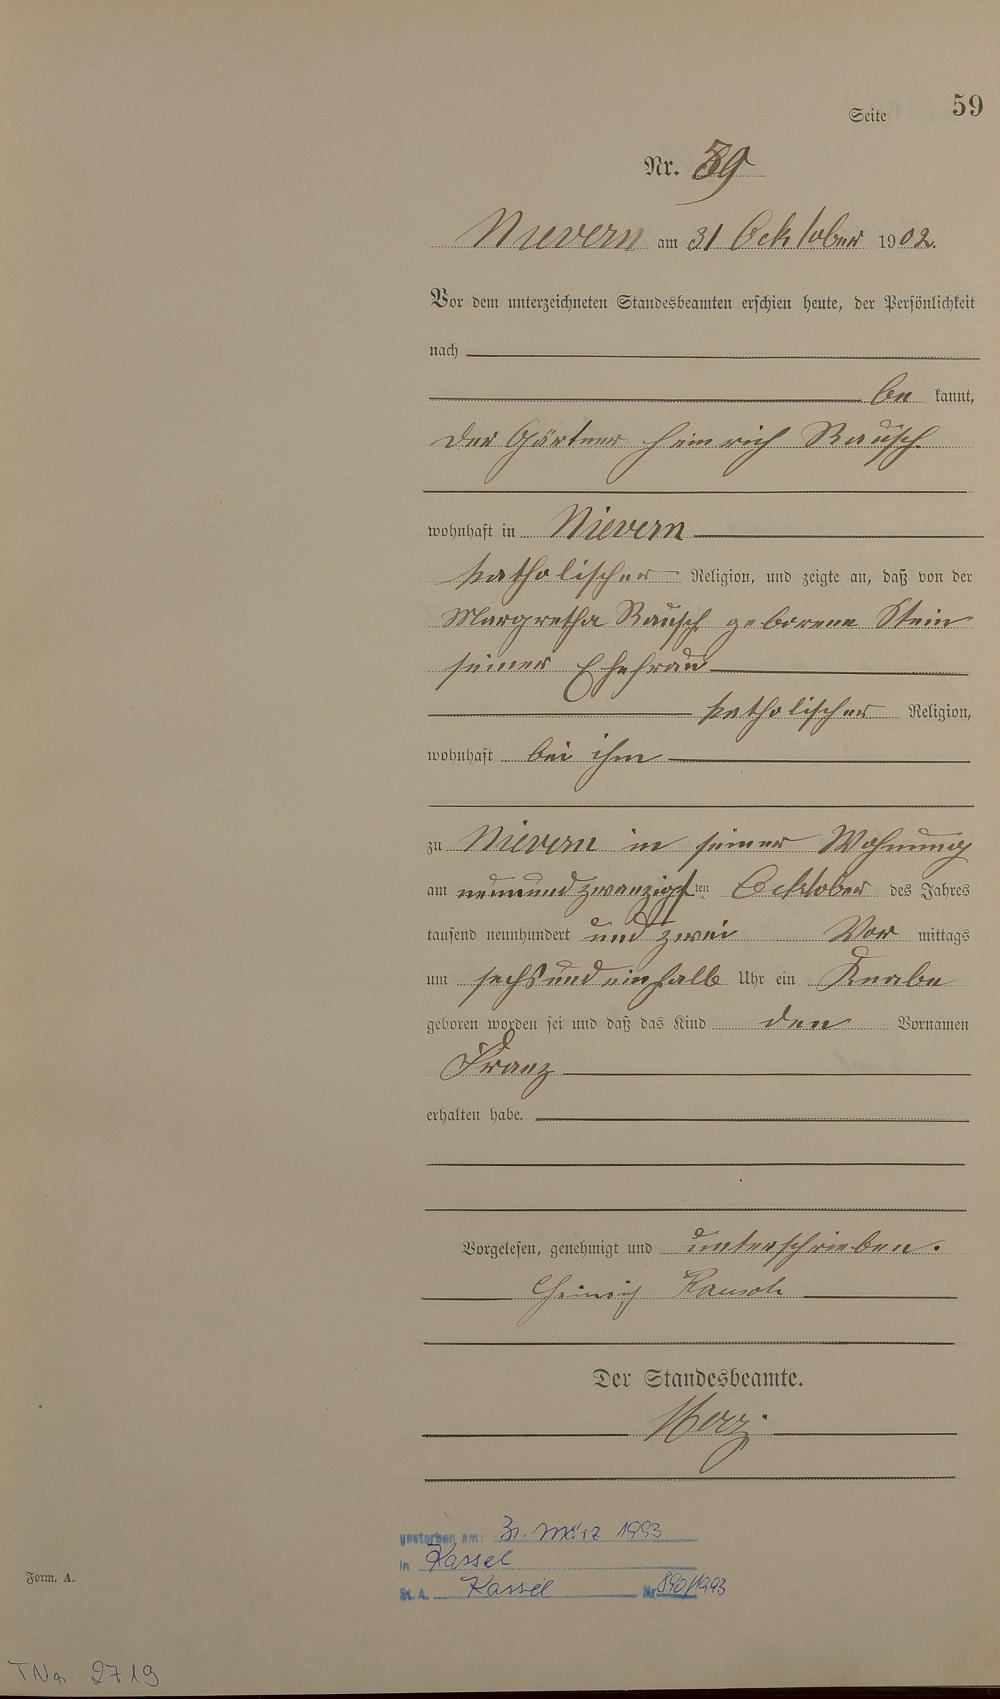 Seite 59
Nr. 59
Nievern am 31 Ocktober 1902.
Vor dem unterzeichneten Standesbeamten erschien heute, der Persönlichkeit
nach
be kannt,
der Gärtner Heinrich Rausch
wohnhaft in Nievern
katholischer Religion, und zeigte an, daß von der
Margretha Rausch geborene Stein
seiner Ehefrau
katholischer Religion,
wohnhaft bei ihm
zu Nievern in seiner Wohnung
am neunundzwanzigsten Ocktober des Jahres
tausend neunhundert und zwei Vor mittags
um sechsundeinhalb Uhr ein Knabe
geboren worden sei und daß das Kind den Vornamen
Franz
erhalten habe.
Vorgelesen, genehmigt und unterschrieben.
Heinrich Rausch
Der Standesbeamte.
gestorben am: 31. März 1993
in Kassel
St. A. Kassel Nr. 890/1993
Form. A.
TNr. 2719